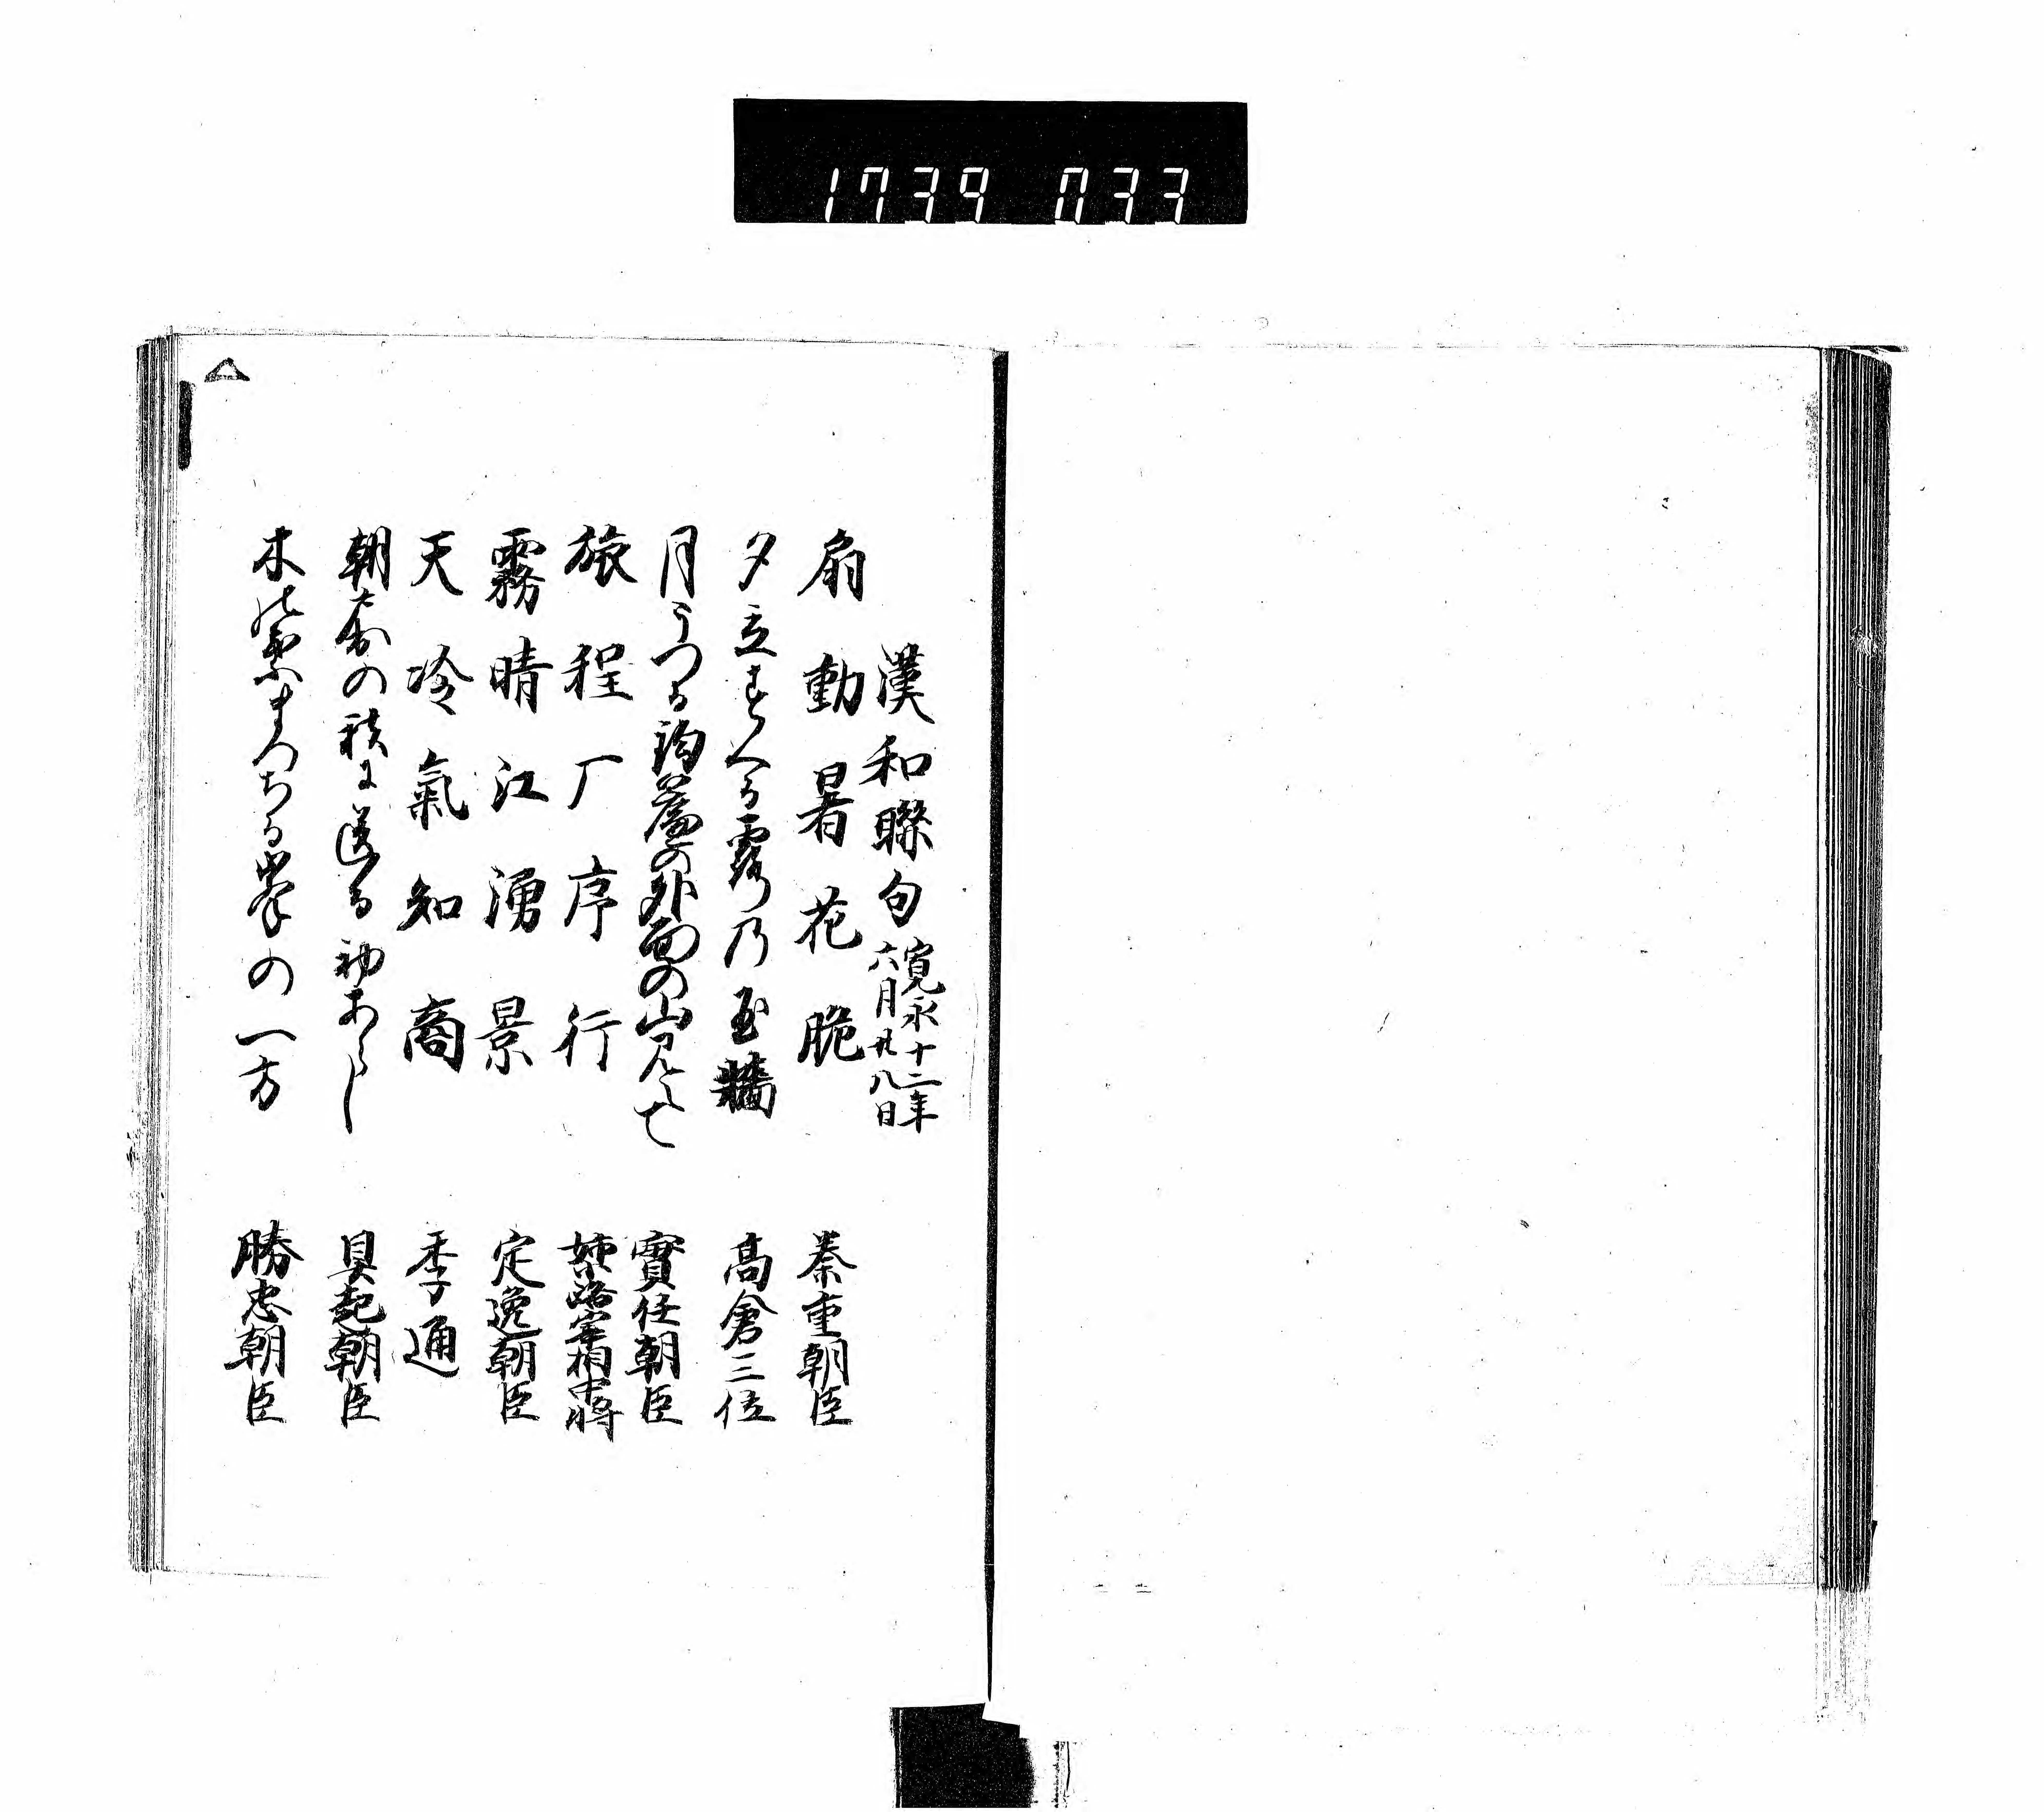 1739 033
漢和聯句 寛永十二年
六月廿八日
扇動暑花脆 泰重朝臣
夕立すくる露乃玉牆 高倉三位
月うつる鈎簾の外面の山見えて 實任朝臣
旅程厂序行 姉小路宰相中将
霧晴江湧景 定逸朝臣
天冷氣知商 季通
朝の秋に送る初あらし 具起朝臣
木葉ましる峯の一方 勝忠朝臣